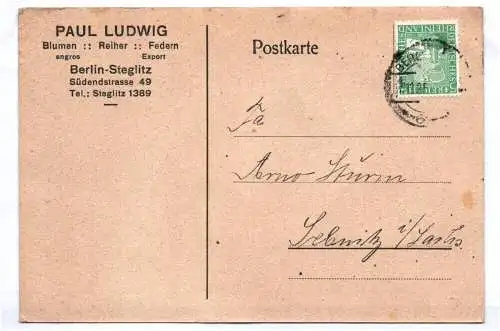 PAUL LUDWIG
Blumen :: Reiher :: Federn
engros Export
Berlin-Steglitz
Südendstrasse 49
Tel.: Steglitz 1389
Postkarte
RHEINLAND
Fa
Arno Sturm
Sebnitz i/Sachs